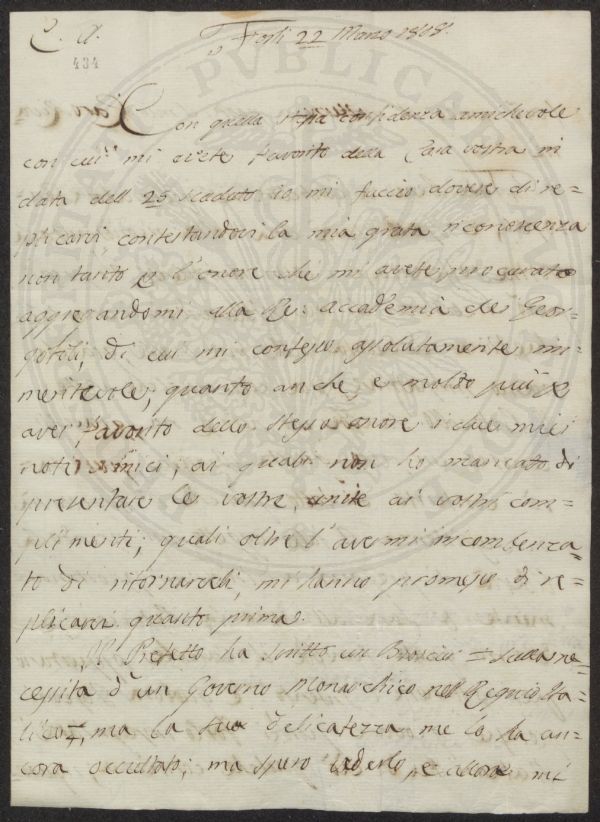 C. A.
434
Forlì 22 Marzo 1808.
Con quella confidenza amichevole
con cui mi avete favorito della Cara vostra in
data dell 25 scaduto io mi faccio dovere di re=
plicarvi, contestandovi la mia grata riconoscenza
non tanto p l'onore che mi avete procurato
aggregandomi alla Re: accademia de Geor=
gofili, di cui mi confesso assolutamente im=
meritevole, quanto anche, e molto più p
aver favorito dello stesso onore i due miei
noti amici, ai quali non ho mancato di
presentare le vostre unite ai vostri com=
plimenti; quali oltre l'avermi incombenza=
to di ritornarveli, mi hanno promesso di re=
plicarvi quanto prima.
Il Prefetto ha scritto un = sulla ne=
cessità d'un Governo Monarchico nell Regno Ita=
lico =, ma la sua delicatezza me lo ha an=
cora occultato; ma spero vederlo, e allora mi